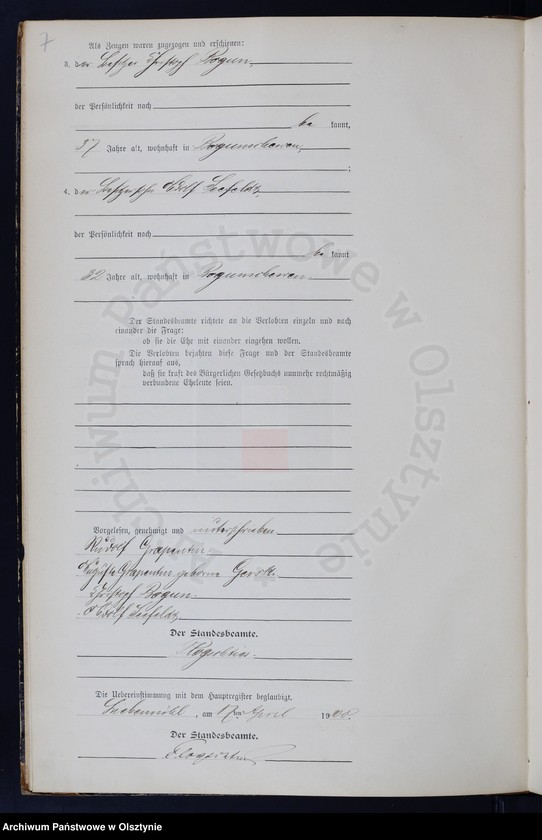 7
Als Zeugen waren zugezogen und erschienen:
3. der Besitzer Christoph Bogun
der Persönlichkeit nach
be kannt,
37 Jahre alt, wohnhaft in Bogunschewen,
;
4. der Adolf Seefeldt,
der Persönlichkeit nach
be kannt
32 Jahre alt, wohnhaft in Bogunschewen.
Der Standesbeamte richtete an die Verlobten einzeln und nach
einander die Frage:
ob sie die Ehe mit einander eingehen wollen.
Die Verlobten bejahten diese Frage und der Standesbeamte
sprach hierauf aus,
daß sie kraft des Bürgerlichen Gesetzbuchs nunmehr rechtmäßig
verbundene Eheleute seien.
Vorgelesen, genehmigt und unterschrieben
Rudolf Grapentin.
Auguste Grapentin geborne
Christoph Bogun.
Adolf Seefeldt
Der Standesbeamte.
Die Uebereinstimmung mit dem Hauptregister beglaubigt.
, am April 1900.
Der Standesbeamte.
Archiwum Państwowe w Olsztynie
Archiwum Państwowe w Olsztynie